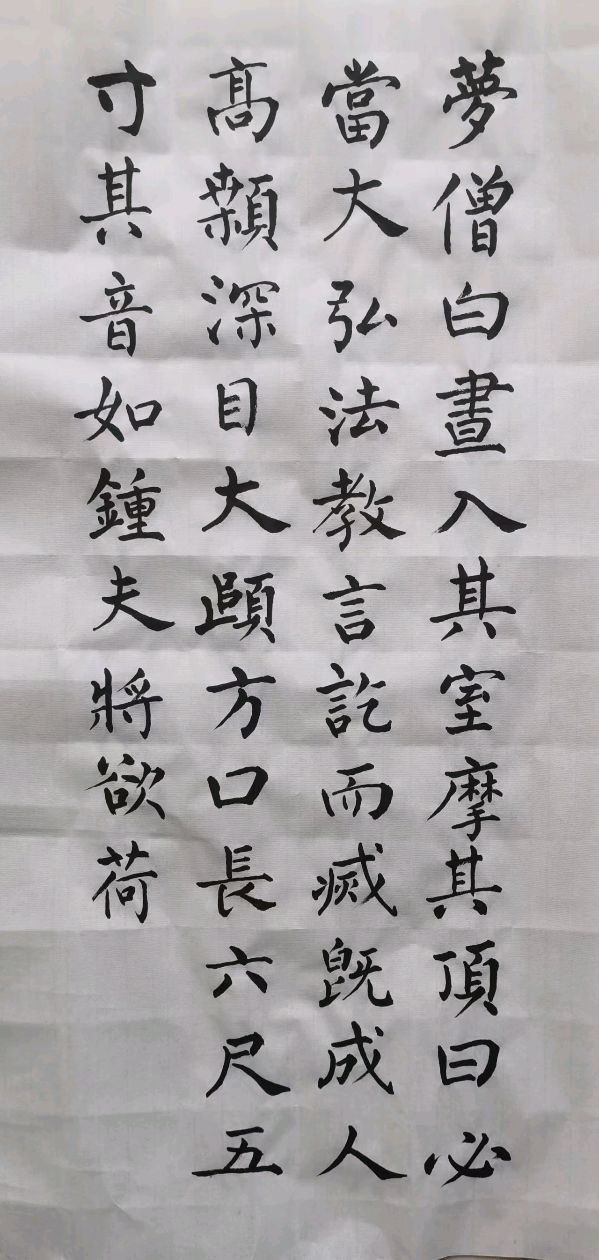 夢僧白晝入其室摩其頂曰必
當大弘法教言訖而滅既成人
高顙深目大頤方口長六尺五
寸其音如鍾夫將欲荷